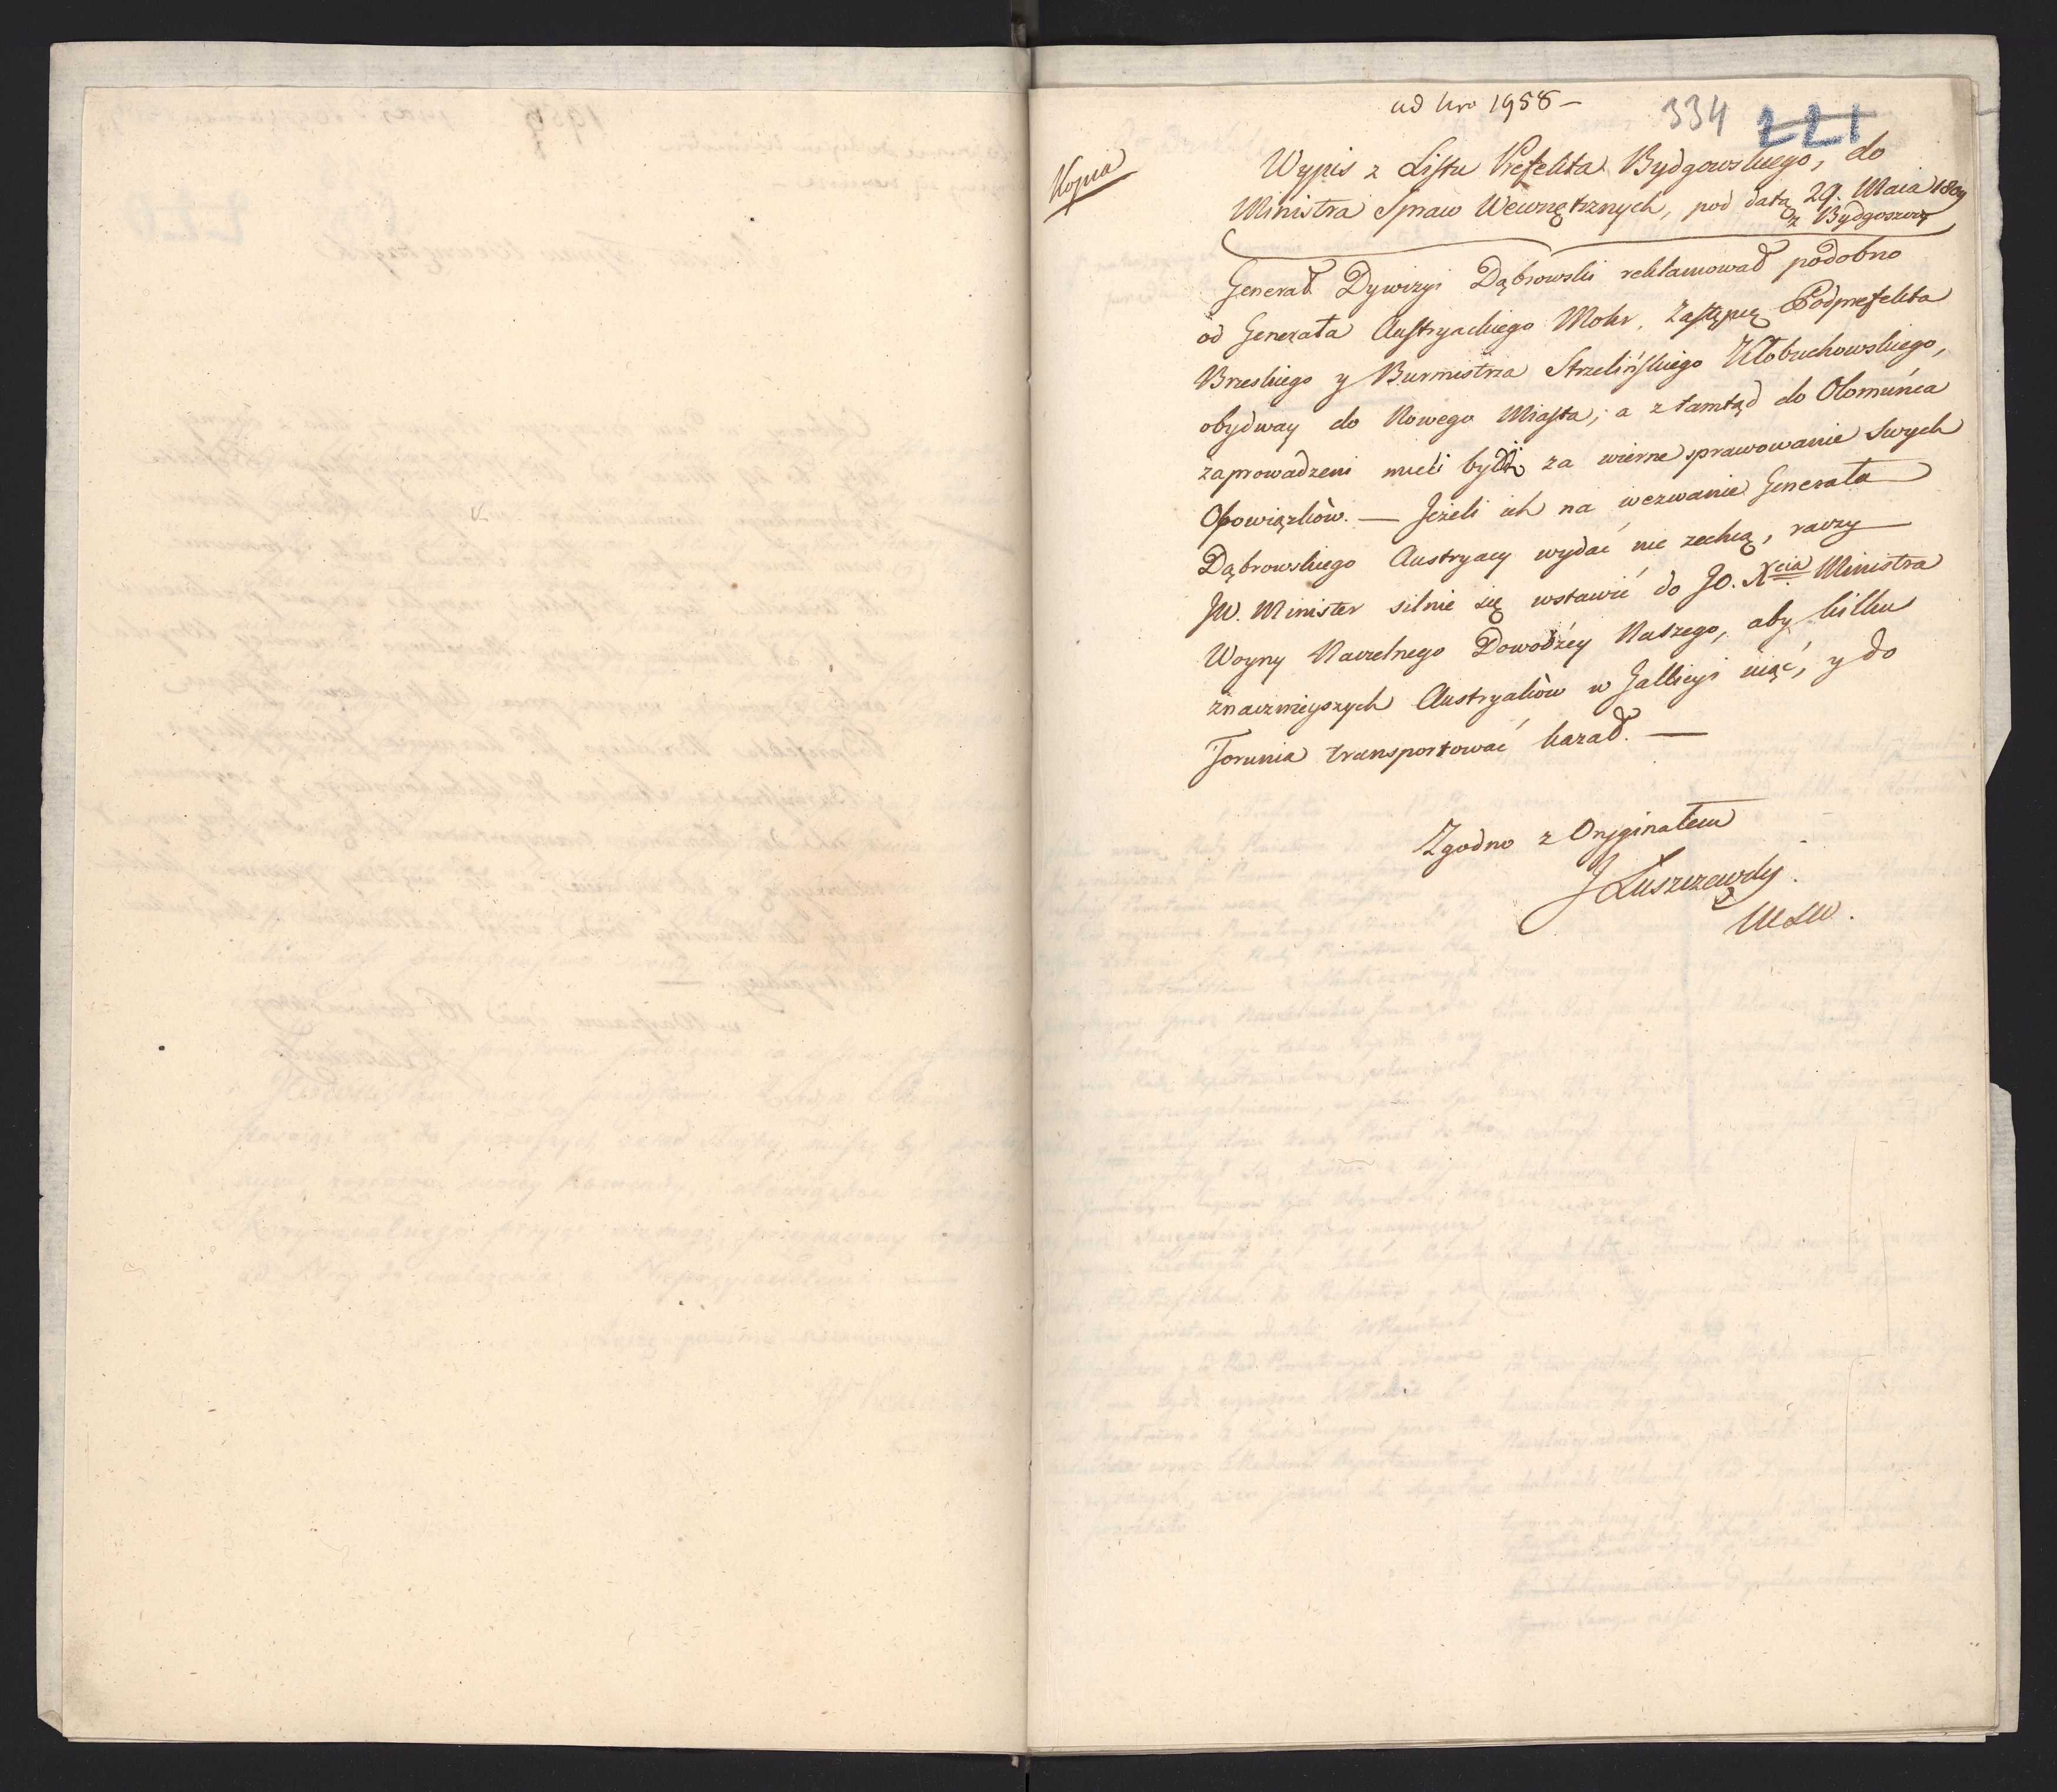 ad Nro 1958 –
334 221
Kopia
Wypis z Listu Prefekta Bydgowskiego, do
Ministra Spraw Wewnętrznych, pod datą 29. Maia 1809
z Bydgoszczy
Generał Dywizyi Dąbrowski reklamował podobno
od Generała Austryackiego Mohr, Zastępcę Podprefekta
Brzeskiego y Burmistrza Strzelińskiego Kłobuchowskiego,
obydway do Nowego Miasta, a ztamtąd do Ołomuńca
zaprowadzeni mieli bydź za wierne sprawowanie swych
Obowiązków. — Jeżeli ich na wezwanie Generała
Dąbrowskiego Austryacy wydać nie zechcą, raczy
JW. Minister silnie się wstawić do JO. Xcia Ministra
Woyny Naczelnego Dowódźcy Naszego, aby kilku
znacznieyszych Austryaków w Gallicyi wziąć, y do
Torunia transportować kazał. —
Zgodno z Oryginałem
J Łuszczewski